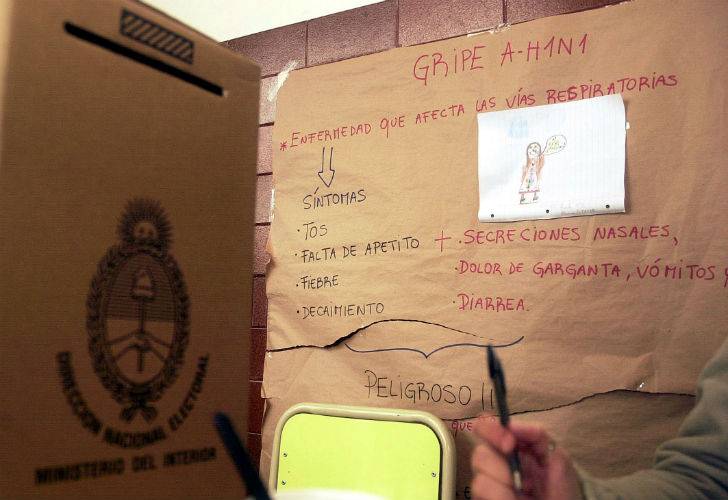 GRIPE A-H1N1
*ENFERMEDAD QUE AFECTA LAS VÍAS RESPIRATORIAS
SÍNTOMAS
· TOS
· FALTA DE APETITO
· FIEBRE
· DECAIMIENTO
+ · SECRECIONES NASALES,
· DOLOR DE GARGANTA, VÓMITOS y
· DIARREA.
PELIGROSO !!
QUE
DIRECCION NACIONAL ELECTORAL
MINISTERIO DEL INTERIOR